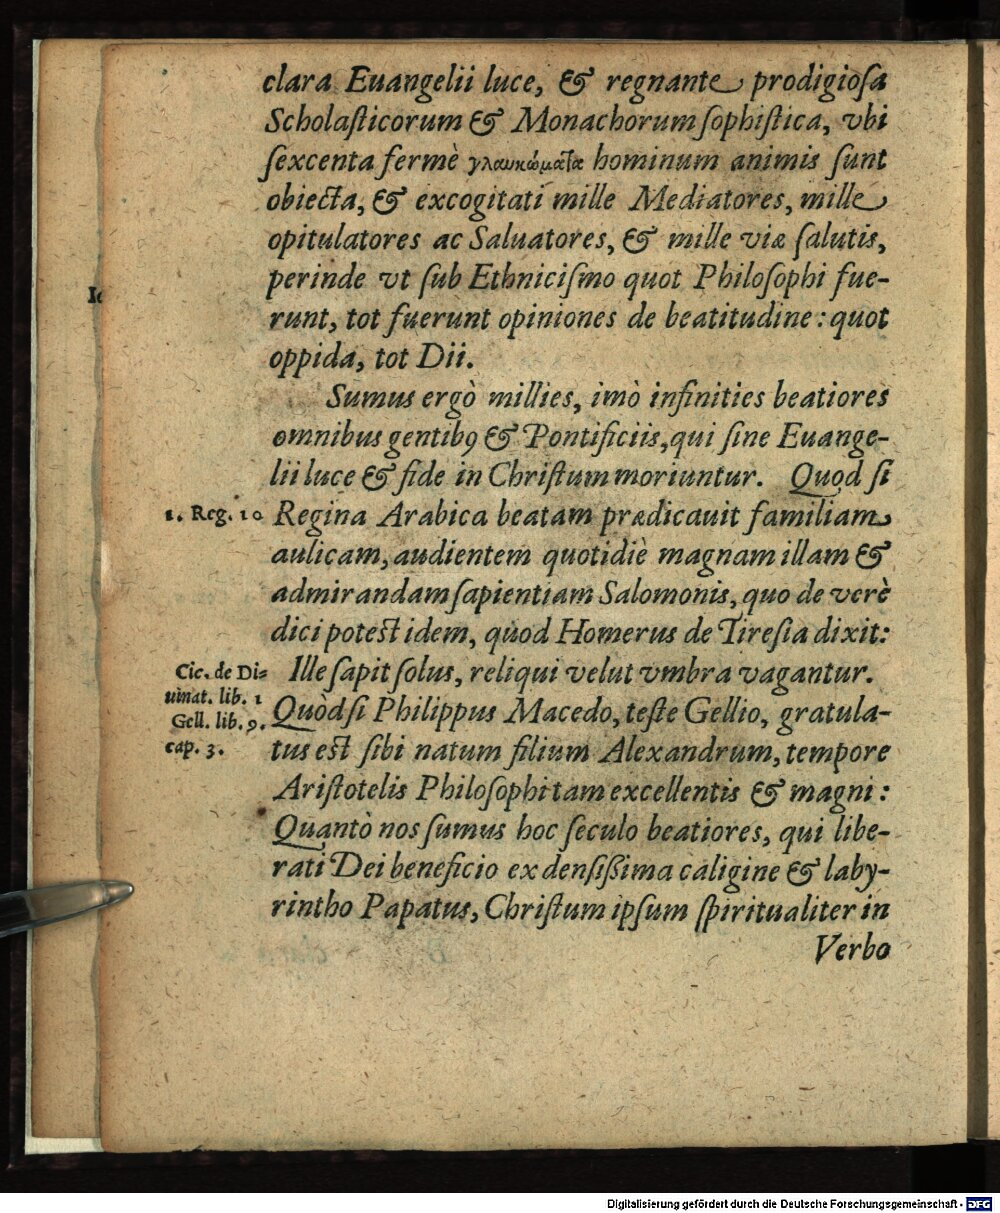 clara Euangelii luce, & regnante prodigiosa
Scholasticorum & Monachorum sophistica, vbi
sexcenta fermè γλαυκώματα hominum animis sunt
obiecta, & excogitati mille Mediatores, mille
opitulatores ac Saluatores, & mille viæ salutis,
perinde vt sub Ethnicismo quot Philosophi fue-
runt, tot fuerunt opiniones de beatitudine: quot
oppida, tot Dii.
Sumus ergò millies, imò infinities beatiores
omnibus gentibꝰ & Pontificiis, qui sine Euange-
lii luce & fide in Christum moriuntur. Quod si
1. Reg. 10 Regina Arabica beatam prædicauit familiam
aulicam, audientem quotidiè magnam illam &
admirandam sapientiam Salomonis, quo de verè
dici potest idem, quod Homerus de Tiresia dixit:
Cic. de Di= Ille sapit solus, reliqui velut vmbra vagantur.
uinat. lib. 1
Gell. lib. 9. Quòd si Philippus Macedo, teste Gellio, gratula-
cap. 3. tus est sibi natum filium Alexandrum, tempore
Aristotelis Philosophi tam excellentis & magni:
Quantò nos sumus hoc seculo beatiores, qui libe-
rati Dei beneficio ex densissima caligine & laby-
rintho Papatus, Christum ipsum spiritualiter in
Verbo
Digitalisierung gefördert durch die Deutsche Forschungsgemeinschaft - DFG